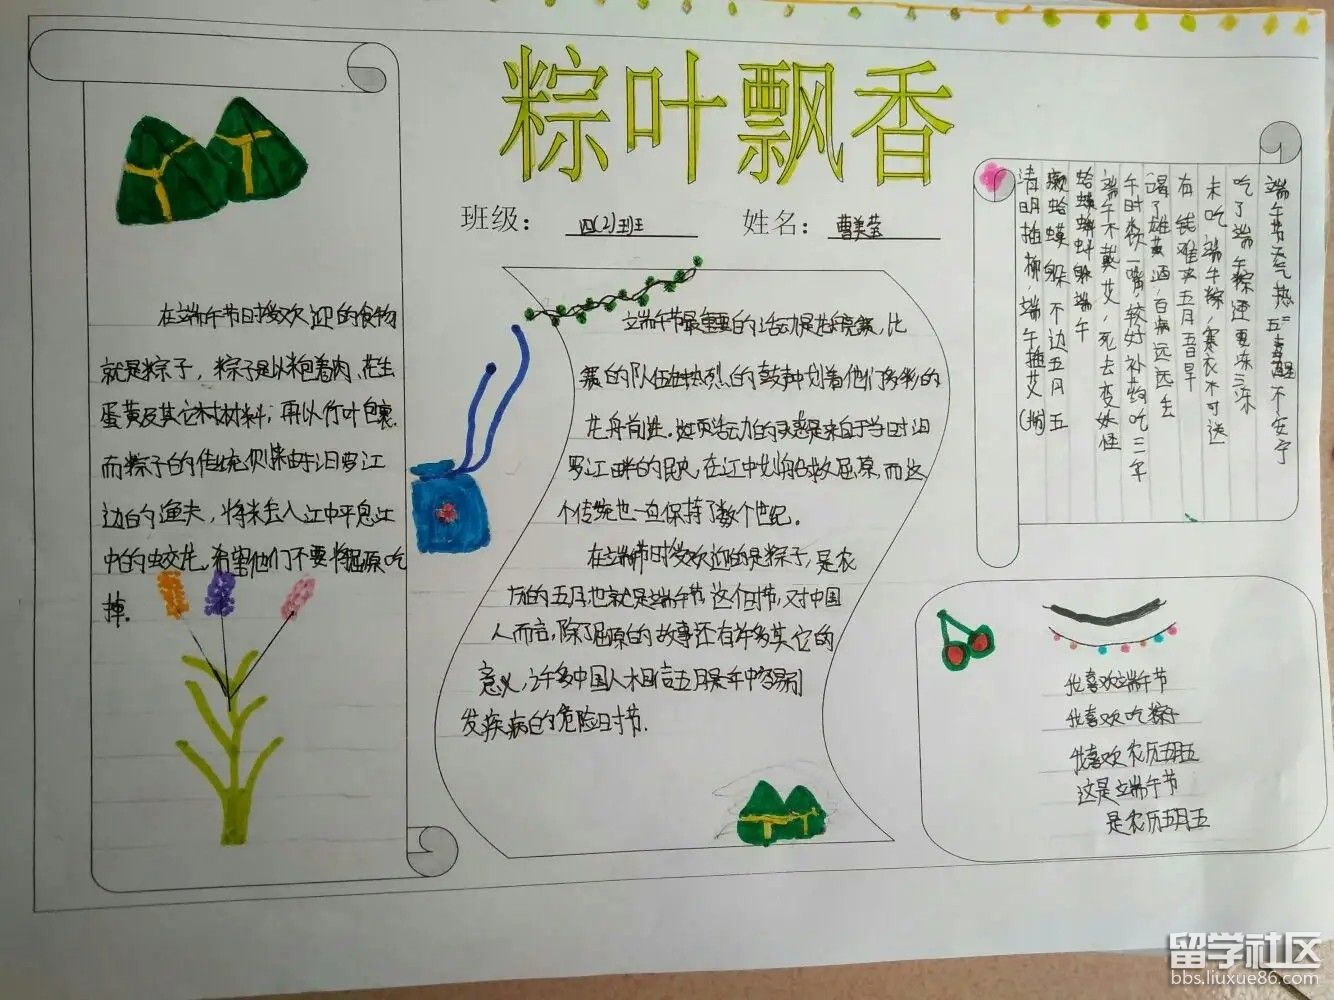 粽叶飘香
班级：四(2)班 姓名：曹美莹
在端午节日授欢迎的食物
就是粽子，粽子是以米包着肉、花生
蛋黄及其它材材料；再以竹叶包裹.
而粽子的传统则来由于汨罗江
边的渔夫，将米丢入江中平息江
中的蛟龙，希望他们不要将屈原吃
掉.
端午节最重要的活动是龙舟竞赛，比
赛的队伍在热烈的鼓声中划着他们多彩的
龙舟前进。这项活动的灵感是来自于当时汨
罗江畔的居民，在江中划船救屈原，而这
个传统也一直保持了数个世纪。
在端午节时受欢迎的是粽子，是农
历的五月，也就是端午节这个时节，对中国
人而言，除了屈原的故事还有许多其它的
意义，许多中国人相信五月是年中容易引
发疾病的危险时节.
端午节天气热五毒醒不安宁
吃了端午粽还要冻三冻
未吃端午粽，寒衣不可送
有钱难买五月五日旱
喝了雄黄酒，百病远远丢
午时水饮一嘴，较好补药吃三年
端午不戴艾，死去变妖怪
蛤蟆蝌蚪躲端午
癞蛤蟆躲不过五月五
清明插柳，端午插艾
我喜欢端午节
我喜欢吃粽子
我喜欢农历五月五
这是端午节
是农历五月五
留学社区
bbs.liuxue86.com